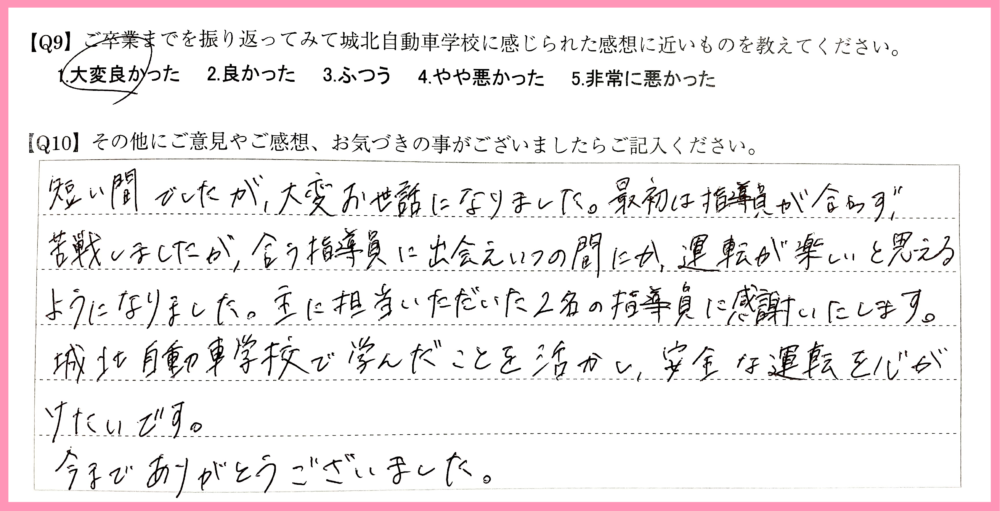 【Q9】ご卒業までを振り返ってみて城北自動車学校に感じられた感想に近いものを教えてください。
1.大変良かった 2.良かった 3.ふつう 4.やや悪かった 5.非常に悪かった
【Q10】その他にご意見やご感想、お気づきの事がございましたらご記入ください。
短い間でしたが、大変お世話になりました。最初は指導員が合わず、
苦戦しましたが、合う指導員に出会えいつの間にか、運転が楽しいと思える
ようになりました。主に担当いただいた2名の指導員に感謝いたします。
城北自動車学校で学んだことを活かし、安全な運転を心が
けたいです。
今までありがとうございました。